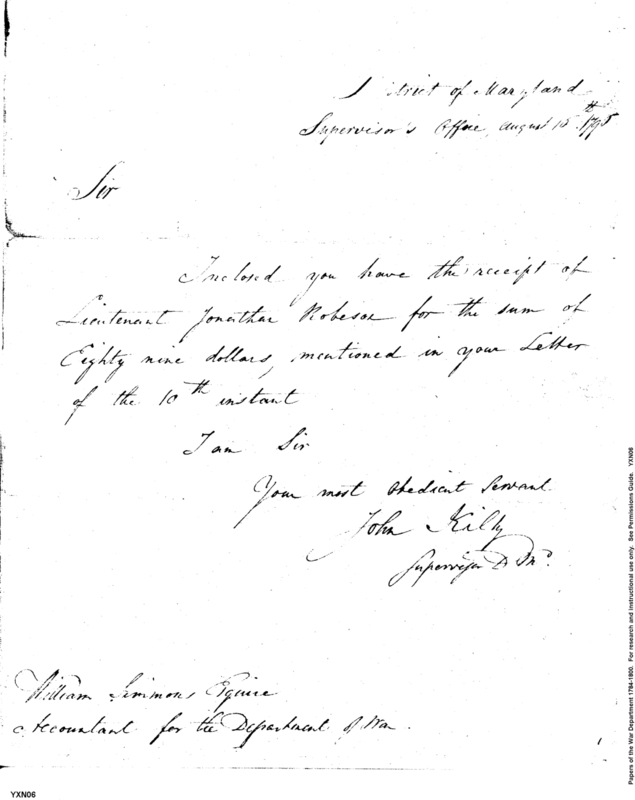 District of Maryland
Supervisor's Office, August 15th 1795
Sir
Inclosed you have the receipt of
Lieutenant Jonathan Robeson for the sum of
Eighty nine dollars, mentioned in your Letter
of the 10th instant
I am Sir
Your most obedient Servant
John Kilty
Supervisor D Mo.
William Simmons Esquire
Accountant for the Department of War.
YXN06
Papers of the War Department 1784-1800. For research and instructional use only. See Permissions Guide. YXN06